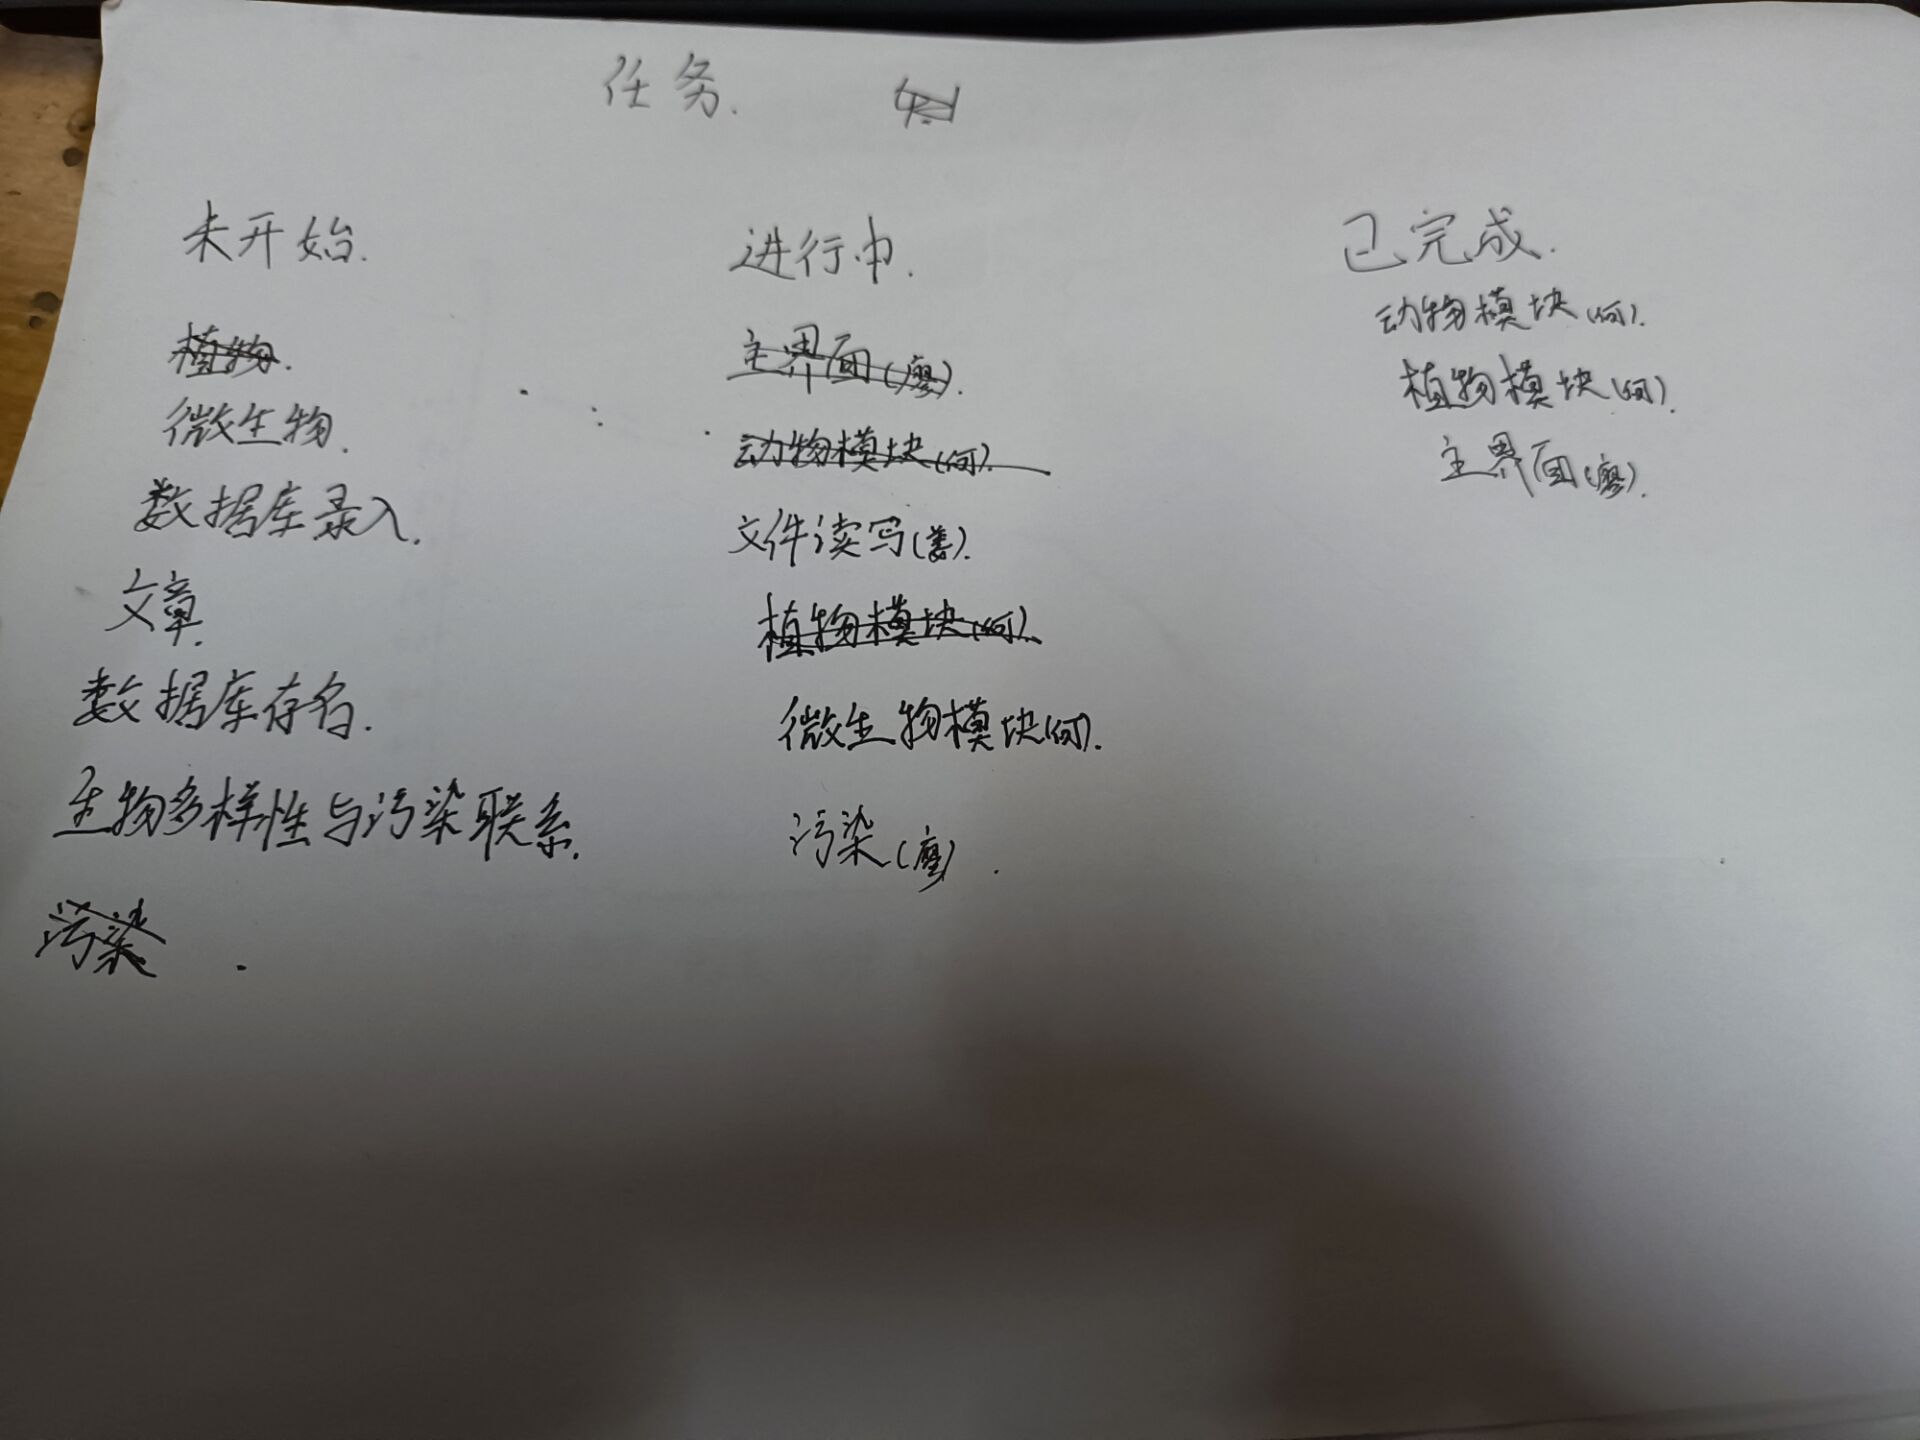 任务.
未开始.
植物.
微生物.
数据库录入.
文章.
数据库存名.
生物多样性与污染联系.
污染.
进行中.
主界面(廖).
动物模块(何).
文件读写(姜).
植物模块(何).
微生物模块(何).
污染(廖).
已完成.
动物模块(何).
植物模块(何).
主界面(廖).